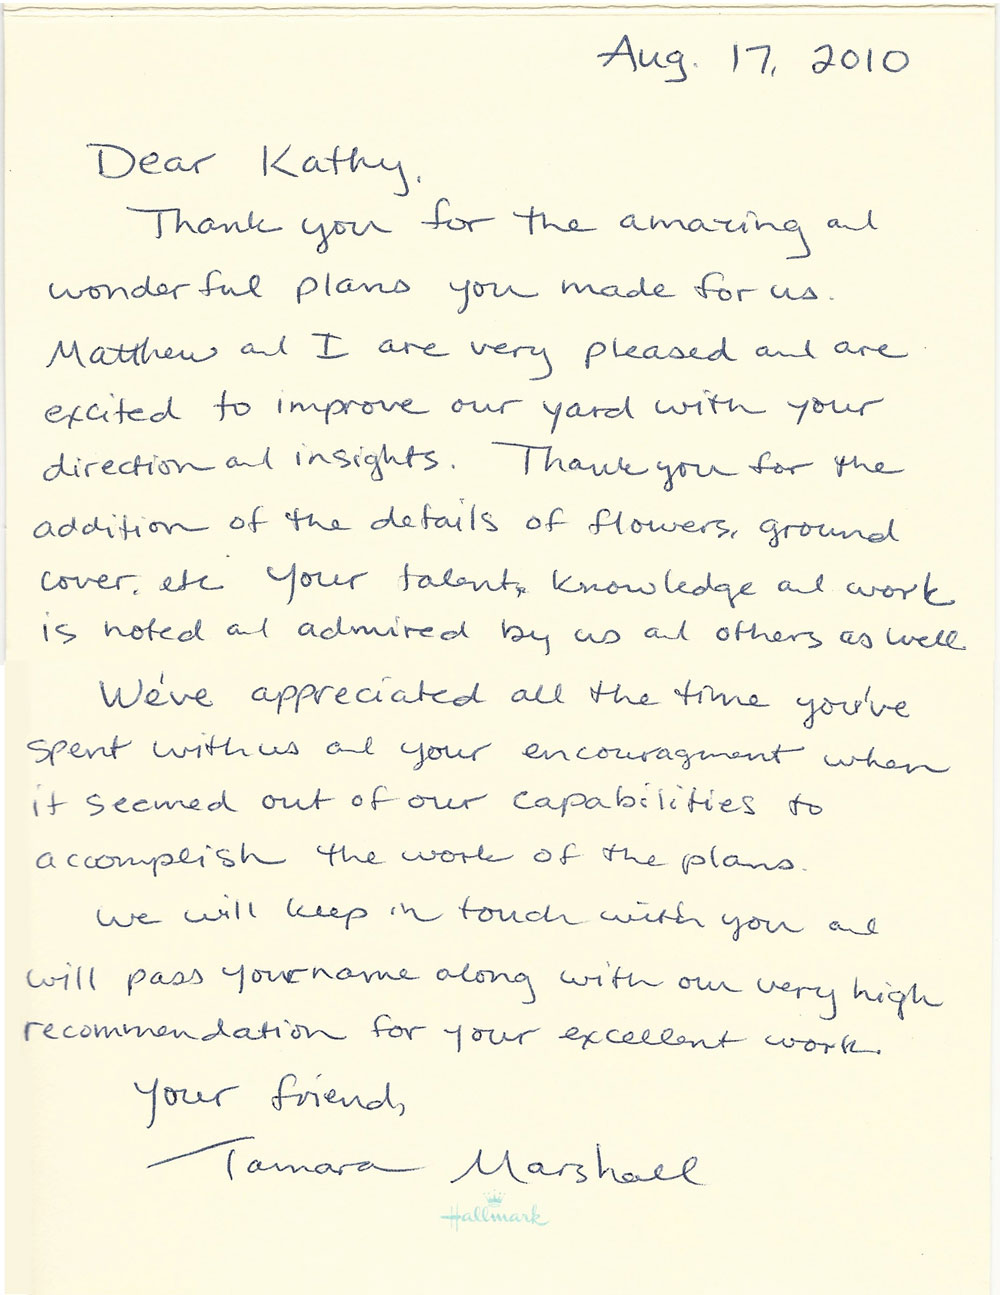 Aug. 17, 2010
Dear Kathy,
Thank you for the amazing and
wonderful plans you made for us.
Matthew and I are very pleased and are
excited to improve our yard with your
direction and insights. Thank you for the
addition of the details of flowers, ground
cover, etc Your talent, knowledge and work
is noted and admired by us and others as well
We've appreciated all the time you've
spent with us and your encouragment when
it seemed out of our capabilities to
accomplish the work of the plans.
We will keep in touch with you and
will pass your name along with our very high
recommendation for your excellent work.
Your friend,
Tamara Marshall
Hallmark